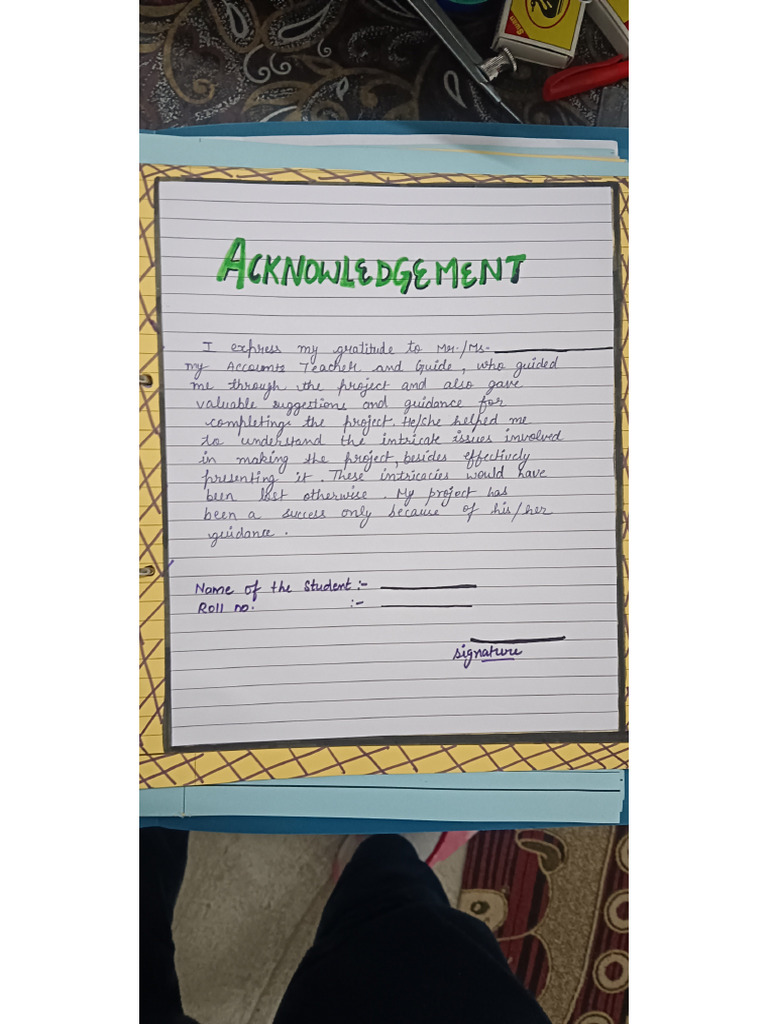 ACKNOWLEDGEMENT
I express my gratitude to Mr./Ms.
my Accounts Teacher and Guide, who guided
me through the project and also gave
valuable suggestions and guidance for
completing the project. He/she helped me
to understand the intricate issues involved
in making the project, besides effectively
presenting it. These intricacies would have
been lost otherwise. My project has
been a success only because of his/her
guidance.
Name of the Student :-
Roll no. :-
signature